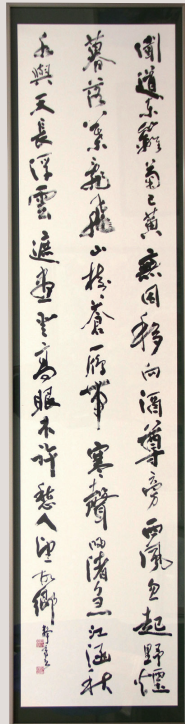 聞道東籬菊已黃無因移向酒尊旁西風忽起野煙
暮落葉亂飛山樹蒼一雁帶寒聲渚江涵秋
水與天長浮雲遮盡登高眼不許愁人望故鄉